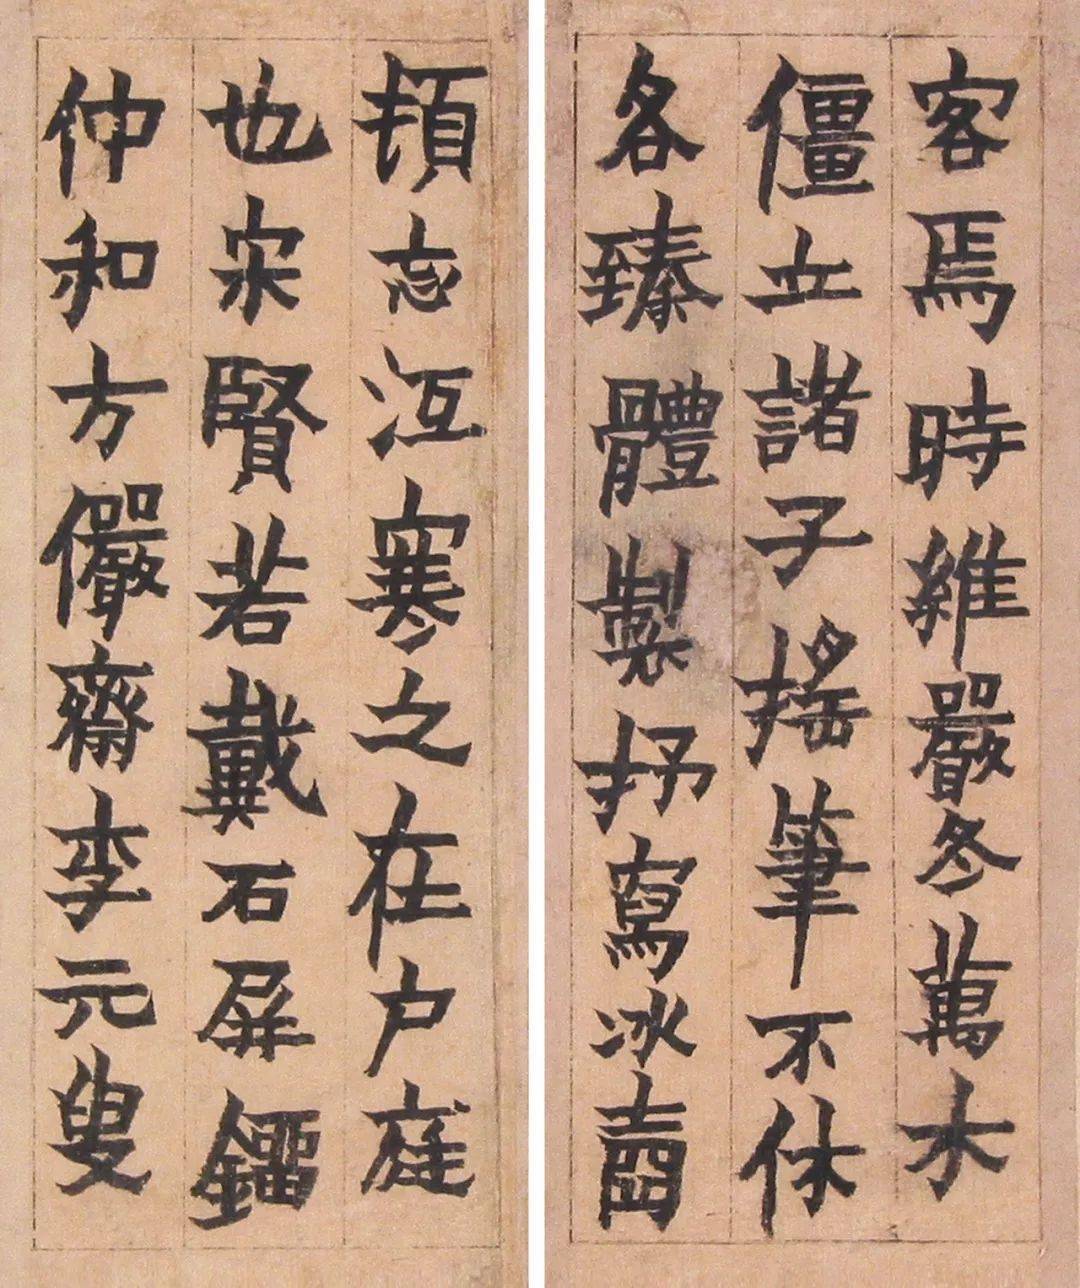 客焉時維嚴冬萬木
僵立諸子搖筆不休
各臻體製抒寫冰齒
頓忘沍寒之在户庭
也宋賢若戴石屏鎦
仲和方儼齋李元叟